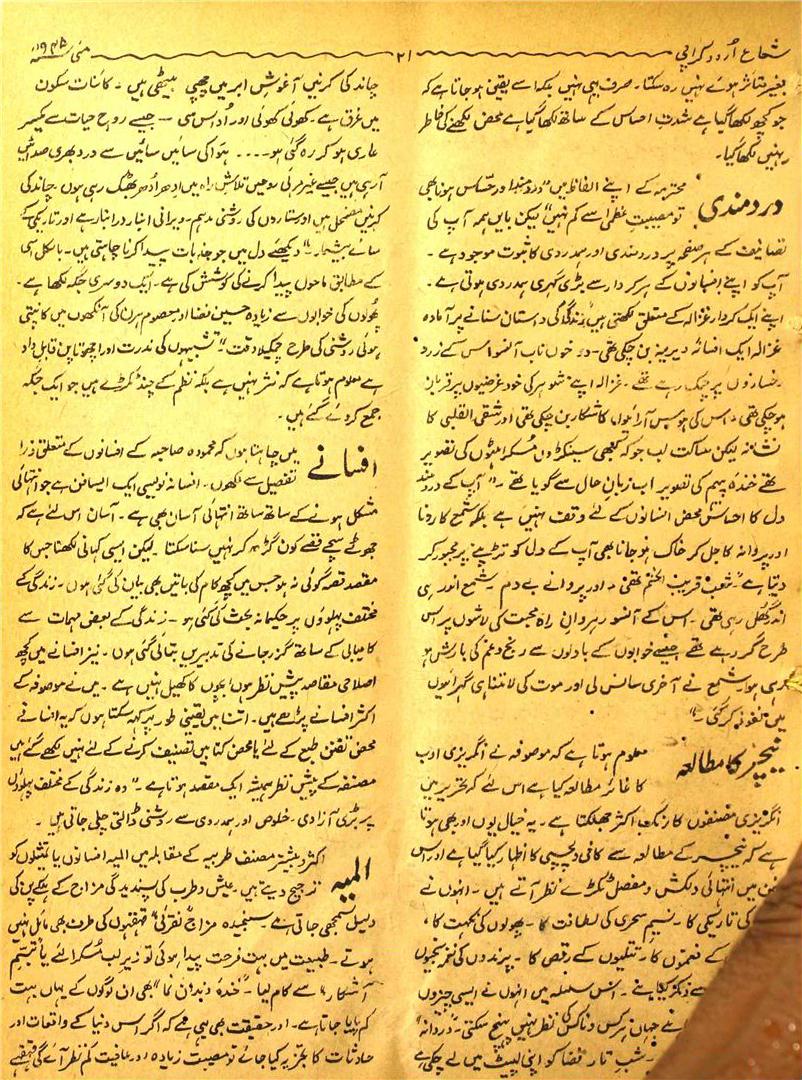 شعاع اُردو کراچی
۲۱
مئی ۱۹۴۵ء
بغیر متاثر ہوئے نہیں رہ سکتا۔ صرف یہی نہیں بلکہ اسے یقین ہو جاتا ہے کہ
جو کچھ لکھا گیا ہے شدتِ احساس کے ساتھ لکھا گیا ہے محض لکھنے کی خاطر
نہیں لکھا گیا۔
دردمندی
محترمہ کے اپنے الفاظ میں "دردمند اور حساس ہونا بھی
تو مصیبتِ عظمیٰ سے کم نہیں" لیکن بایں ہمہ آپ کی
تصانیف کے ہر صفحہ پر دردمندی اور ہمدردی کا ثبوت موجود ہے۔
آپ کو اپنے افسانوں کے ہر کردار سے بڑی گہری ہمدردی ہوتی ہے۔
اپنے ایک کردار غزالہ کے متعلق لکھتی ہیں "زندگی کی داستان سنانے پر آمادہ
غزالہ ایک افسانۂ دیرینہ بن چکی تھی۔ دو خوں ناب آنسو اس کے زرد
رخساروں پر چمک رہے تھے۔ غزالہ اپنے شوہر کی خود غرضیوں پر قربان
ہو چکی تھی۔ اس کی ہوس آرائیوں کا شکار بن چکی تھی اور شقی القلبی کا
نشانہ لیکن ساکت لب جو کہ کبھی سینکڑوں مسکراہٹوں کی تصویر
تھے خندۂ پیہم کی تصویر اب زبانِ حال سے گویا تھے۔" آپ کے دردمند
دل کا احساس محض انسانوں کے لئے وقف نہیں ہے بلکہ شمع کا رونا
اور پروانہ کا جل کر خاک ہو جانا بھی آپ کے دل کو تڑپنے پر مجبور کر
دیتا ہے "شب قریب الختم تھی۔ اور پروانے بے دم۔ شمع اندر ہی
اندر گھل رہی تھی۔ اس کے آنسو رہروانِ راہِ محبت کی لاشوں پر اس
طرح گر رہے تھے جیسے خوابوں کے بادلوں سے رنج و غم کی بارش ہو
رہی ہو۔ شمع نے آخری سانس لی اور موت کی لامتناہی گہرائیوں
میں نفوذ کر گئی۔"
نیچر کا مطالعہ
معلوم ہوتا ہے کہ موصوفہ نے انگریزی ادب
کا غائر مطالعہ کیا ہے اس لئے کہ تحریر میں
انگریزی مصنفوں کا رنگ اکثر جھلکتا ہے۔ یہ خیال یوں اور بھی ہوتا
ہے کہ نیچر کے مطالعہ سے کافی دلچسپی کا اظہار کیا گیا ہے اور اس
میں انتہائی دلکش و مفصل ٹکڑے نظر آتے ہیں۔ انہوں نے
کی تاریکی کا۔ نسیمِ سحری کی لطافت کا۔ پھولوں کی نکہت کا،
کے نغموں کا۔ تتلیوں کے رقص کا۔ پرندوں کی نغمہ سنجیوں
سے ذکر کیا ہے۔ اس سلسلہ میں انہوں نے ایسی چیزوں
جہاں ہر کس و ناکس کی نظر نہیں پہنچ سکتی۔ "دروانہ"
۔ شبِ تار فضا کو اپنی لپیٹ میں لے چکی ہے
چاند کی کرنیں آغوشِ ابر میں چھپی بیٹھی ہیں۔ کائنات سکون
میں غرق ہے۔ کھوئی کھوئی اور اُداس سی۔ جیسے روح حیات سے یکسر
عاری ہو کر رہ گئی ہو.... ہوا کی سائیں سائیں سے درد بھری صدائیں
آ رہی ہیں جیسے غیر مرئی روحیں تلاشِ راہ میں اِدھر اُدھر بھٹک رہی ہوں۔ چاند کی
کرنیں مضمحل ہیں اور ستاروں کی روشنی مدہم۔ ویرانی انبار در انبار ہے اور تاریکی کے
سائے بیشمار۔" دیکھئے دل میں جو جذبات پیدا کرنا چاہتی ہیں۔ بالکل اسی
کے مطابق ماحول پیدا کرنے کی کوشش کی ہے۔ ایک دوسری جگہ لکھا ہے۔
پھولوں کی خوابوں سے زیادہ حسین فضا اور معصوم ہرن کی آنکھوں میں کانپتی
ہوئی روشنی کی طرح چمکیلا وقت۔" تشبیہوں کی ندرت اور اچھوتا پن قابلِ داد
ہے معلوم ہوتا ہے کہ نثر نہیں ہے بلکہ نظم کے چند ٹکڑے ہیں جو ایک جگہ
جمع کر دئے گئے ہیں۔
افسانے
میں چاہتا ہوں کہ محمودہ صاحبہ کے افسانوں کے متعلق ذرا
تفصیل سے لکھوں۔ افسانہ نویسی ایک ایسا فن ہے جو انتہائی
مشکل ہونے کے ساتھ ساتھ انتہائی آسان بھی ہے۔ آسان اس لئے ہے کہ
جھوٹے سچے قصے کون گڑھ کر نہیں سنا سکتا۔ لیکن ایسی کہانی لکھنا جس کا
مقصد قصہ گوئی نہ ہو جس میں کچھ کام کی باتیں بھی بیان کی گئی ہوں۔ زندگی کے
مختلف پہلوؤں پر حکیمانہ بحث کی گئی ہو۔ زندگی کے بعض مہمات سے
کامیابی کے ساتھ گزر جانے کی تدبیریں بتائی گئی ہوں۔ نیز افسانے میں کچھ
اصلاحی مقاصد پیشِ نظر ہوں بچوں کا کھیل نہیں ہے۔ میں نے موصوفہ کے
اکثر افسانے پڑھے ہیں۔ اتنا میں یقینی طور پر کہہ سکتا ہوں کہ یہ افسانے
محض تفننِ طبع کے لئے یا محض کتابیں تصنیف کرنے کے لئے نہیں لکھے گئے ہیں
مصنفہ کے پیشِ نظر ہمیشہ ایک مقصد ہوتا ہے۔" وہ زندگی کے مختلف پہلوؤں
پر بڑی آزادی۔ خلوص اور ہمدردی سے روشنی ڈالتی چلی جاتی ہیں۔
المیہ
اکثر و بیشتر مصنف طربیہ کے مقابلہ میں المیہ افسانوں یا تمثیلوں کو
ترجیح دیتے ہیں۔ عیش و طرب کی پسندیدگی مزاج کے ہلکے پن کی
دلیل سمجھی جاتی ہے۔ سنجیدہ مزاج "نقرئی" قہقہوں کی طرف بھی مائل نہیں
ہوتے۔ طبیعت میں بہت فرحت پیدا ہوئی تو زیرِ لب مسکرائے یا "تبسم
آشکار" سے کام لیا۔ "خندۂ دنداں نما" بھی ان لوگوں کے یہاں بہت
کم پایا جاتا ہے۔ اور حقیقت بھی یہی ہے کہ اگر اس دنیا کے واقعات اور
حادثات کا تجزیہ کیا جائے تو مصیبت زیادہ اور عافیت کم نظر آئے گی قہقہے